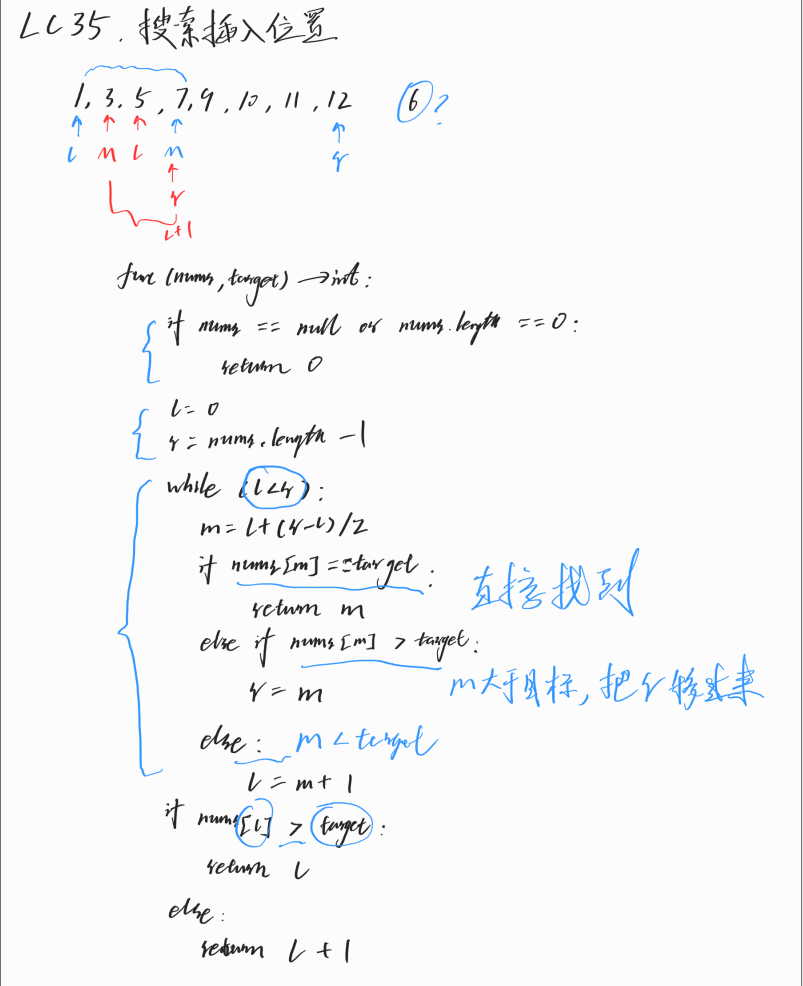 LC35. 搜索插入位置
1, 3, 5, 7, 9, 10, 11, 12 6?
l m l m r
r
l+1
func (nums, target) → int:
if nums == null or nums.length == 0:
return 0
l = 0
r = nums.length - 1
while (l<r):
m = l + (r-l)/2
if nums[m] == target: 直接找到
return m
else if nums[m] > target:
r = m m大于目标, 把r移过来
else: m < target
l = m + 1
if nums[l] > target:
return l
else:
return l + 1